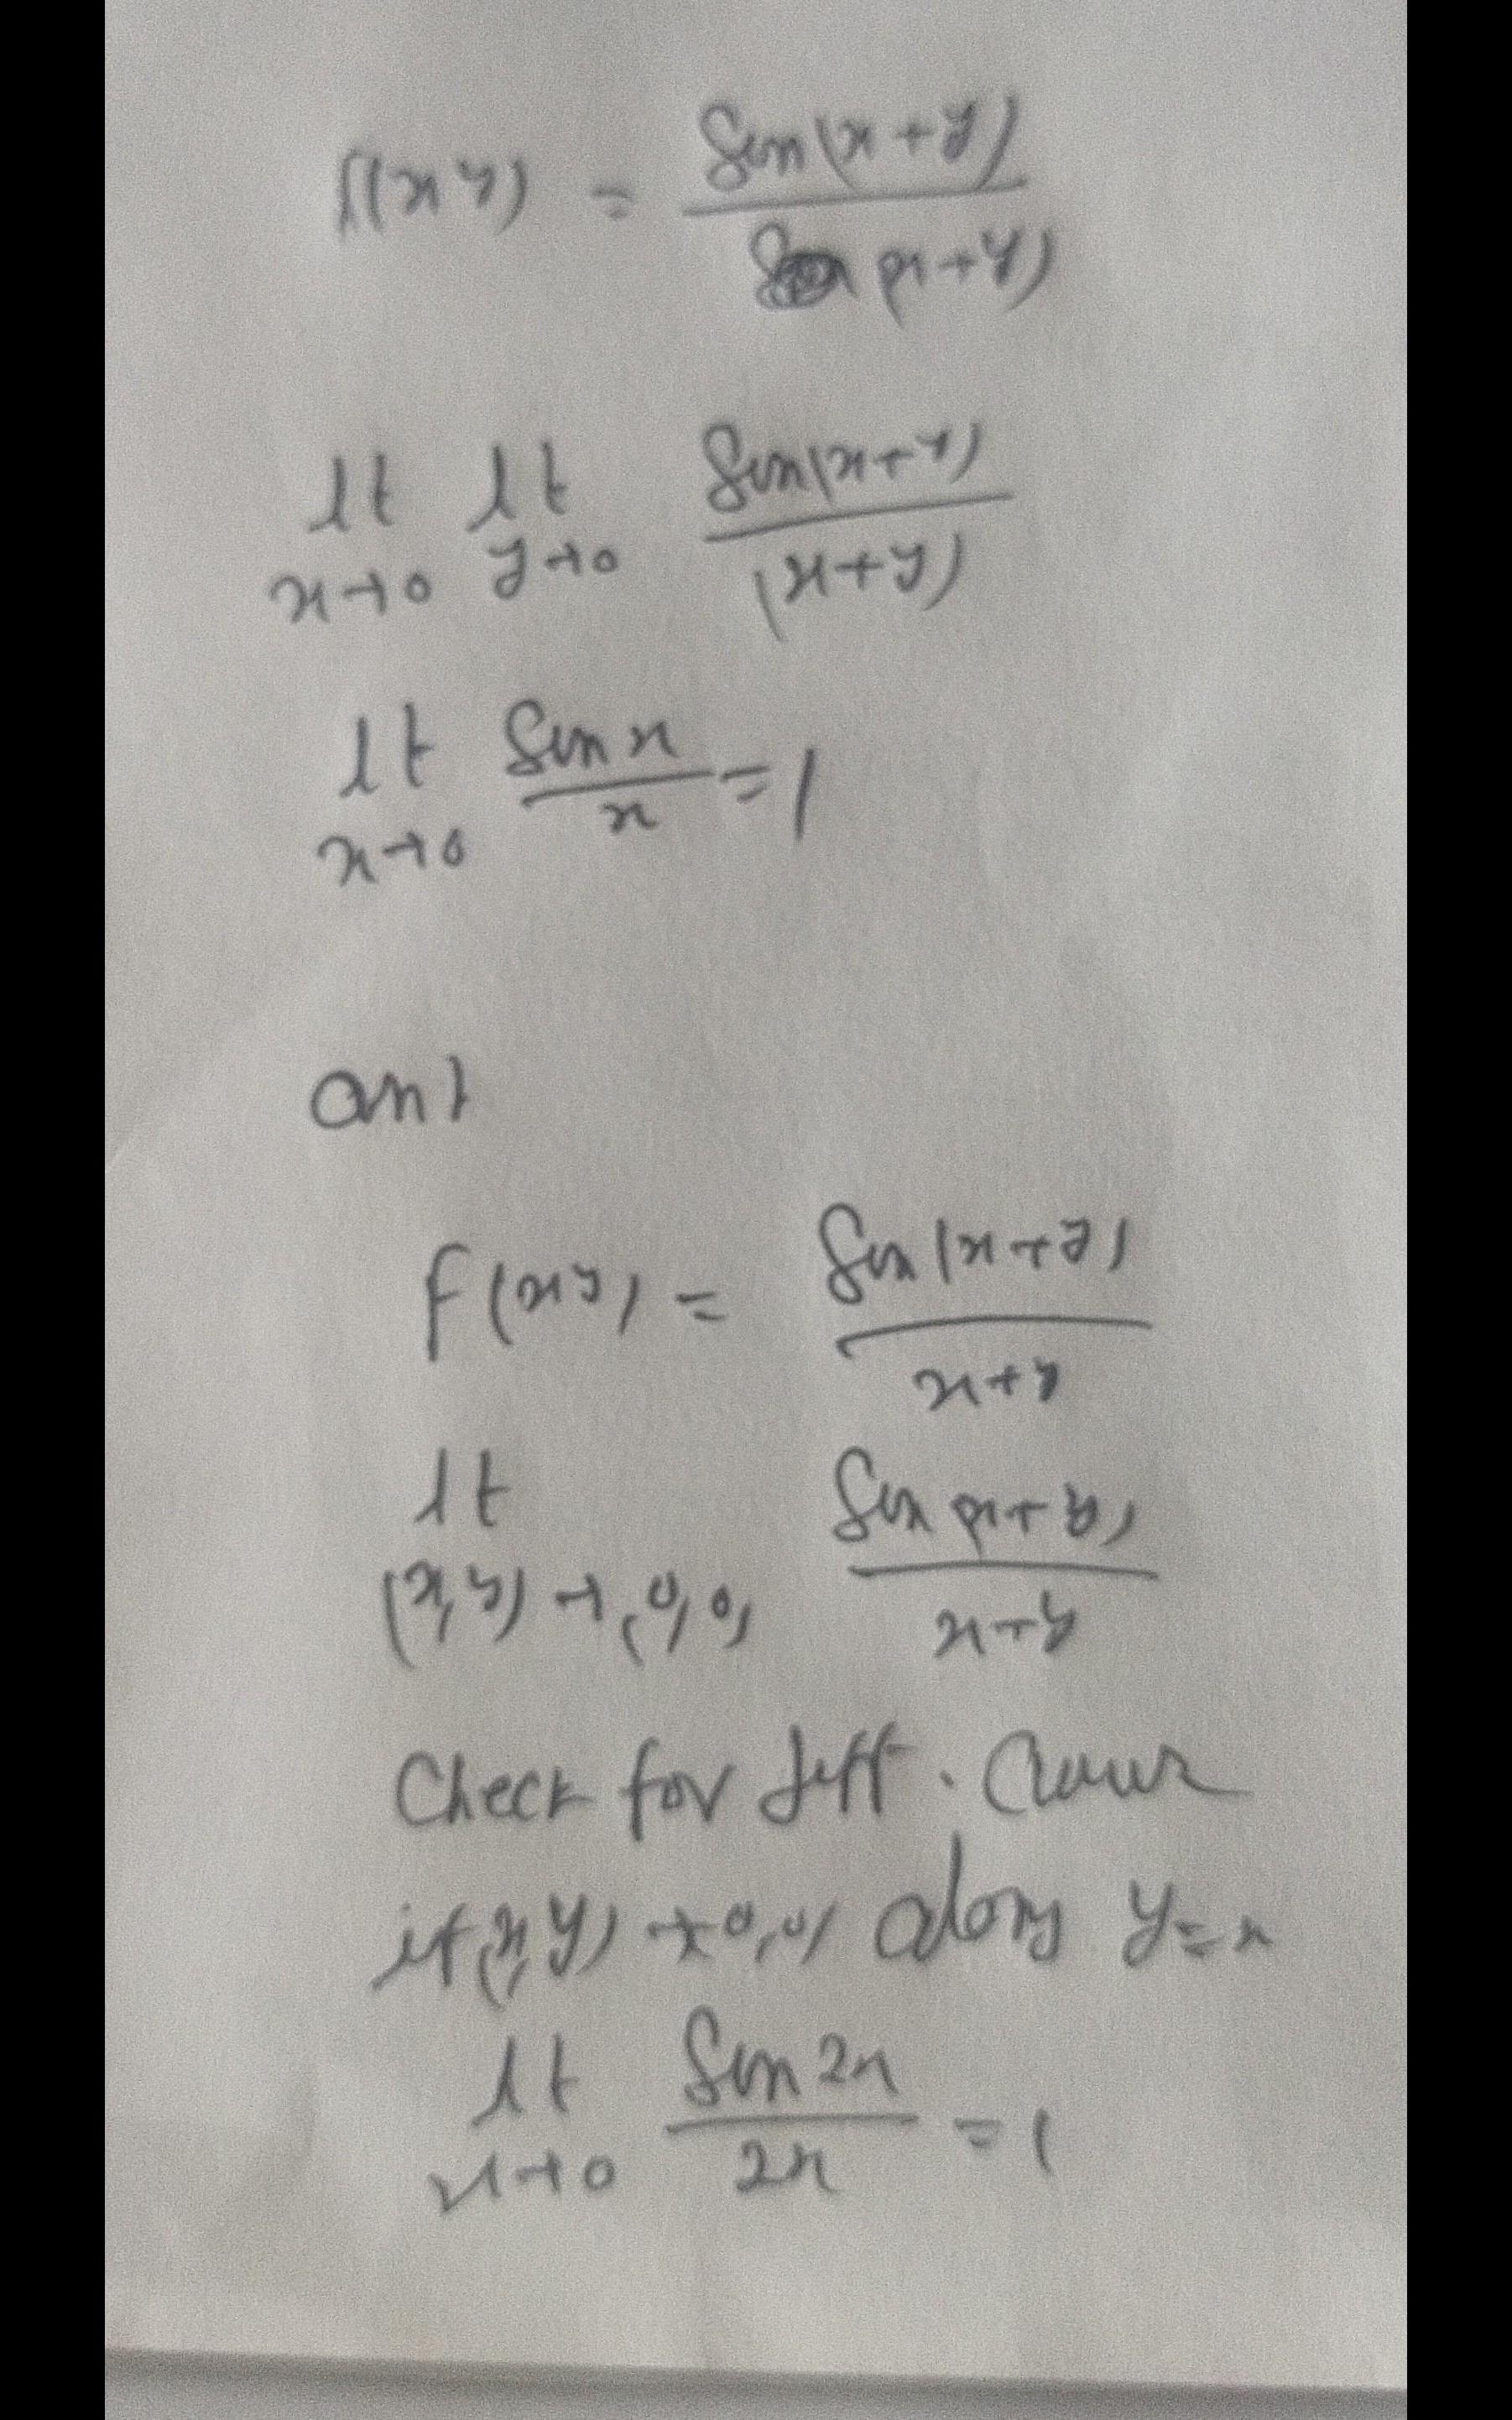 f(x y) = Sin(x+y) / (x+y)
lt x→0 lt y→0 Sin(x+y) / (x+y)
lt x→0 Sin x / x = 1
and
f(x y) = Sin(x+y) / x+y
lt (x,y)→(0,0) Sin(x+y) / x+y
Check for diff.
if (x,y)→(0,0) along y=x
lt x→0 Sin 2x / 2x = 1